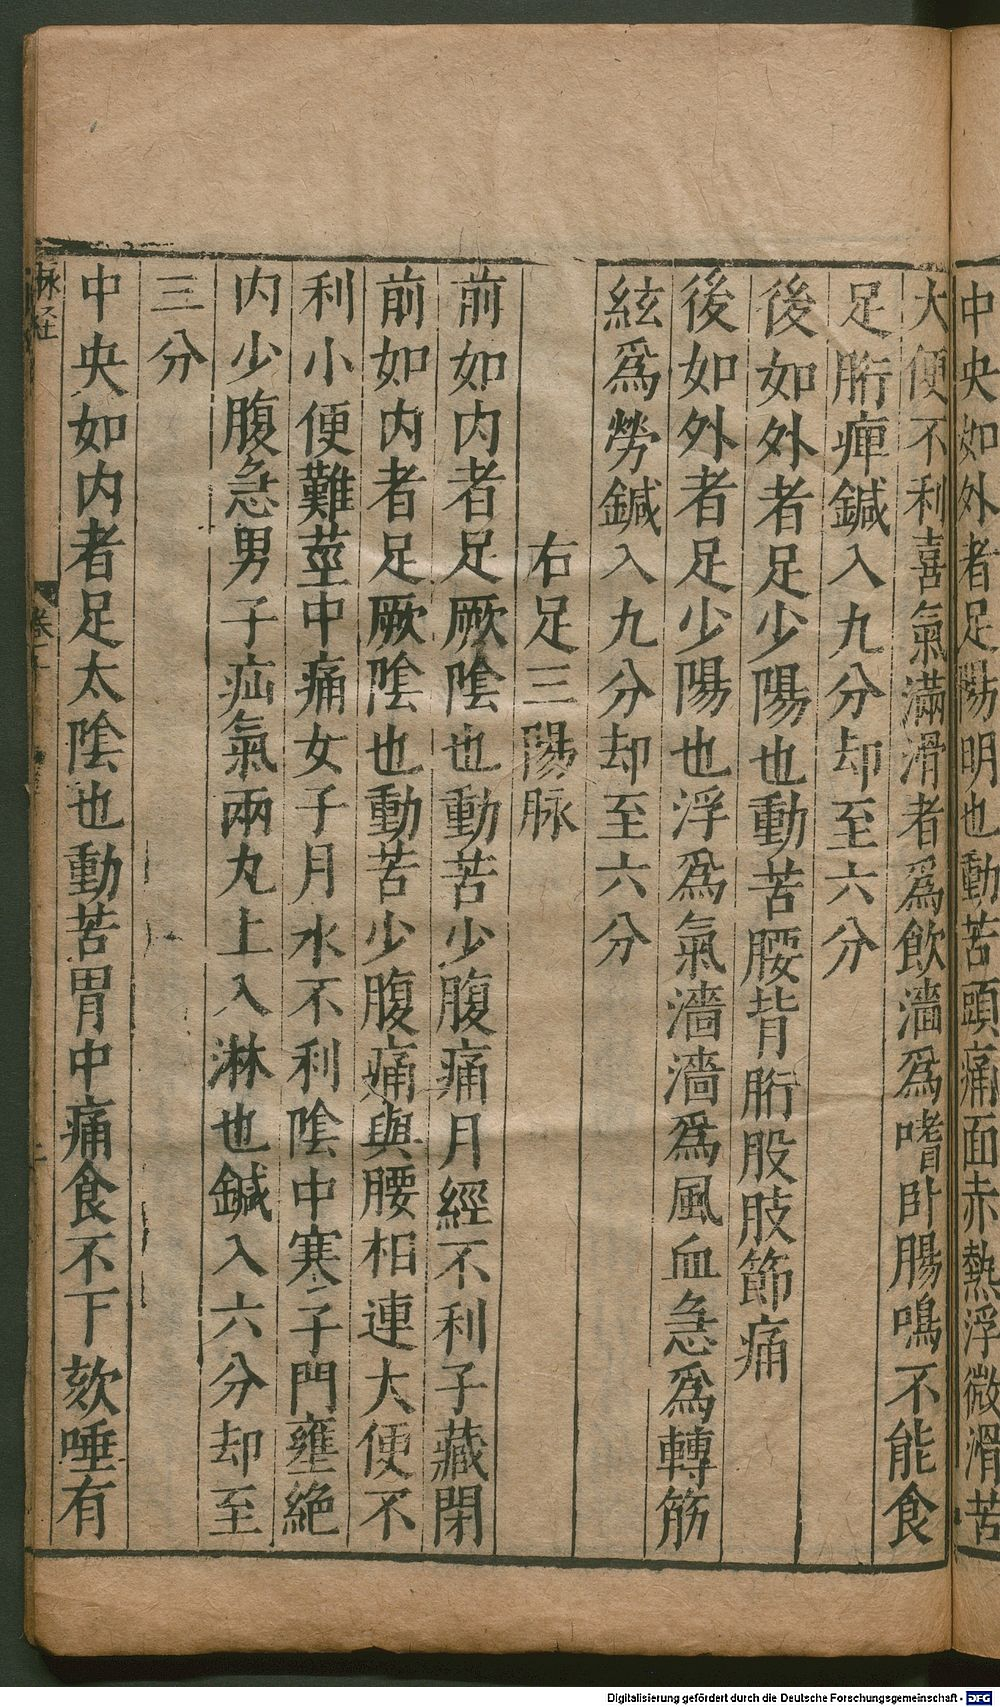 中央如外者足陽明也動苦頭痛面赤熱浮微滑苦
大便不利喜氣滿滑者爲飲濇爲嗜卧腸鳴不能食
足胻痺鍼入九分却至六分
後如外者足少陽也動苦腰背胻股肢節痛
後如外者足少陽也浮爲氣濇濇爲風血急爲轉筋
絃爲勞鍼入九分却至六分
右足三陽脉
前如内者足厥陰也動苦少腹痛月經不利子藏閉
前如内者足厥陰也動苦少腹痛與腰相連大便不
利小便難莖中痛女子月水不利陰中寒子門壅絶
内少腹急男子疝氣兩丸上入淋也鍼入六分却至
三分
中央如内者足太陰也動苦胃中痛食不下欬唾有
脉经
Digitalisierung gefördert durch die Deutsche Forschungsgemeinschaft - DFG